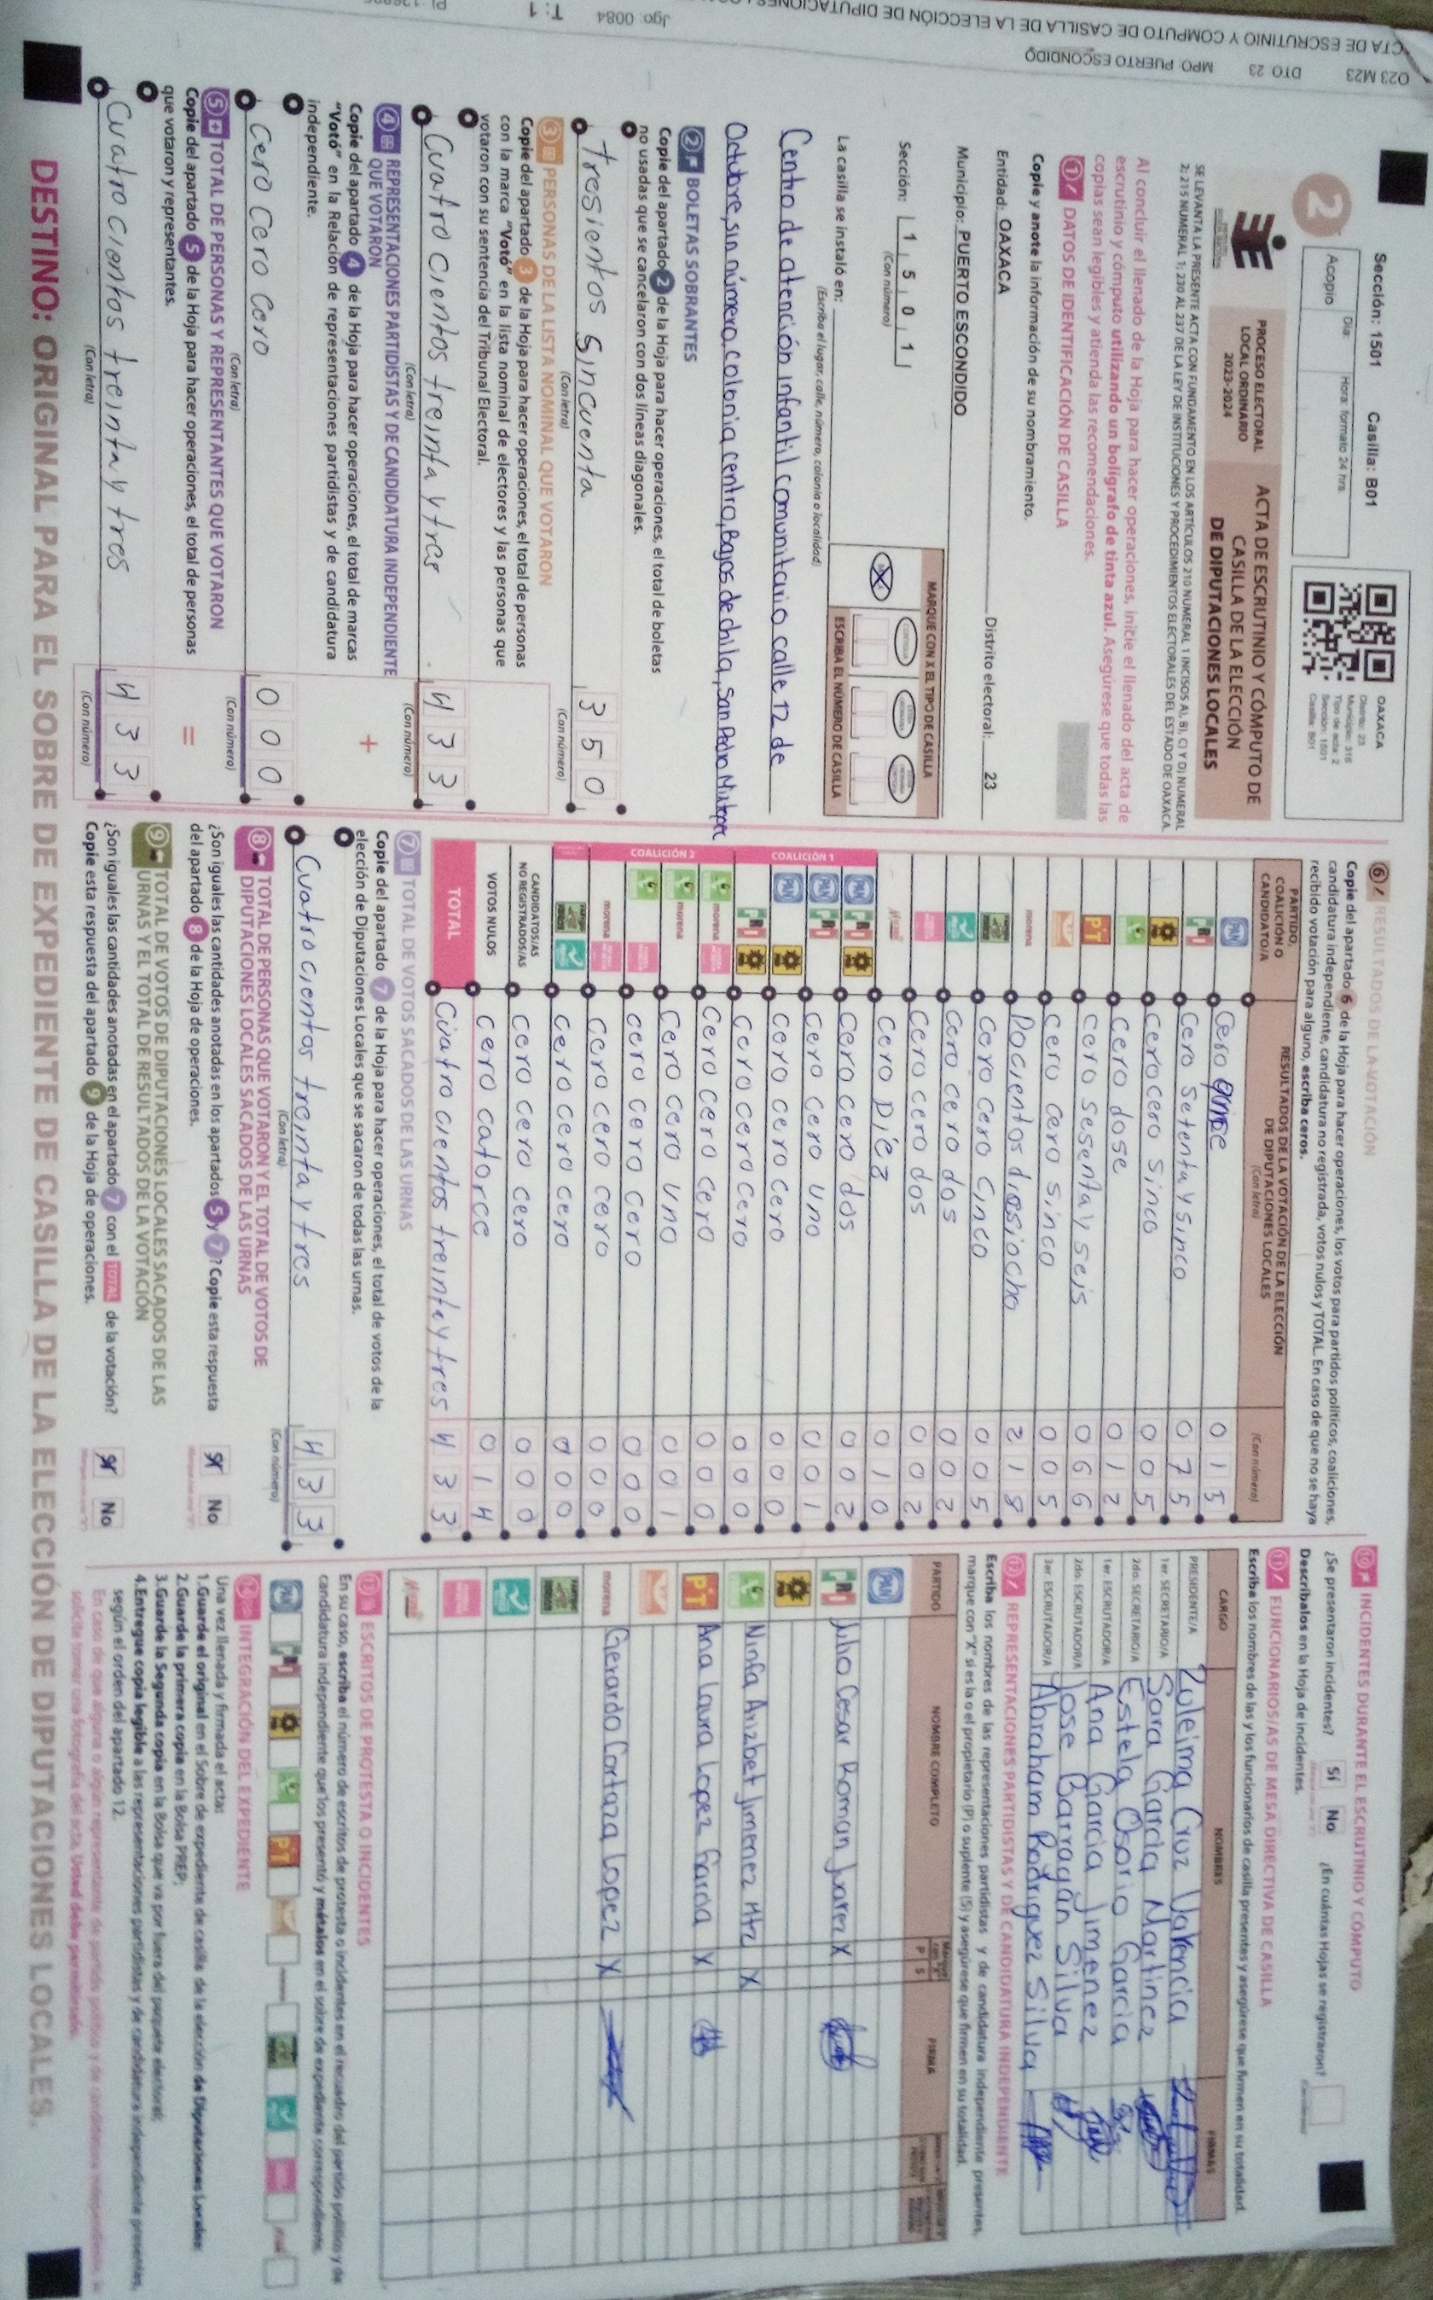 O23 M23 DTO 23 MPO PUERTO ESCONDIDO
Jgo: 0084 T: 1
ACTA DE ESCRUTINIO Y CÓMPUTO DE CASILLA DE LA ELECCIÓN DE DIPUTACIONES
Sección: 1501 Casilla: B01
2
Acopio
Día:
Hora: formato 24 hrs.
OAXACA
Distrito: 23
Municipio: 318
Tipo de acta: 2
Sección: 1501
Casilla: B01
PROCESO ELECTORAL
LOCAL ORDINARIO
2023-2024
ACTA DE ESCRUTINIO Y CÓMPUTO DE
CASILLA DE LA ELECCIÓN
DE DIPUTACIONES LOCALES
SE LEVANTA LA PRESENTE ACTA CON FUNDAMENTO EN LOS ARTÍCULOS 210 NUMERAL 1 INCISOS A), B), C) Y D) NUMERAL
2; 215 NUMERAL 1; 230 AL 237 DE LA LEY DE INSTITUCIONES Y PROCEDIMIENTOS ELECTORALES DEL ESTADO DE OAXACA.
Al concluir el llenado de la Hoja para hacer operaciones, inicie el llenado del acta de
escrutinio y cómputo utilizando un bolígrafo de tinta azul. Asegúrese que todas las
copias sean legibles y atienda las recomendaciones.
1 DATOS DE IDENTIFICACIÓN DE CASILLA
Copie y anote la información de su nombramiento.
Entidad: OAXACA Distrito electoral: 23
Municipio: PUERTO ESCONDIDO
Sección: 1 5 0 1
(Con número)
MARQUE CON X EL TIPO DE CASILLA
ESCRIBA EL NÚMERO DE CASILLA
La casilla se instaló en:
(Escriba el lugar, calle, número, colonia o localidad)
Centro de atención infantil comunitario calle 12 de
Octubre, sin número, colonia centro, Bajos de chila, San Pedro Mixtepec
2 BOLETAS SOBRANTES
Copie del apartado 2 de la Hoja para hacer operaciones, el total de boletas
no usadas que se cancelaron con dos líneas diagonales.
tresientos sincuenta 3 5 0
(Con letra) (Con número)
3 PERSONAS DE LA LISTA NOMINAL QUE VOTARON
Copie del apartado 3 de la Hoja para hacer operaciones, el total de personas
con la marca "Votó" en la lista nominal de electores y las personas que
votaron con su sentencia del Tribunal Electoral.
Cuatro cientos treinta y tres 4 3 3
(Con letra) (Con número)
4 REPRESENTACIONES PARTIDISTAS Y DE CANDIDATURA INDEPENDIENTE
QUE VOTARON
+
Copie del apartado 4 de la Hoja para hacer operaciones, el total de marcas
"Votó" en la Relación de representaciones partidistas y de candidatura
independiente.
Cero Cero Cero 0 0 0
(Con letra) (Con número)
5 TOTAL DE PERSONAS Y REPRESENTANTES QUE VOTARON
=
Copie del apartado 5 de la Hoja para hacer operaciones, el total de personas
que votaron y representantes.
Cuatro cientos treinta y tres 4 3 3
(Con letra) (Con número)
6 RESULTADOS DE LA VOTACIÓN
Copie del apartado 6 de la Hoja para hacer operaciones, los votos para partidos políticos, coaliciones,
candidatura independiente, candidatura no registrada, votos nulos y TOTAL. En caso de que no se haya
recibido votación para alguno, escriba ceros.
PARTIDO,
COALICIÓN O
CANDIDATO/A
RESULTADOS DE LA VOTACIÓN DE LA ELECCIÓN
DE DIPUTACIONES LOCALES
(Con letra) (Con número)
PAN Cero quince 0 1 5
PRI Cero Setenta y sinco 0 7 5
cero cero sinco 0 0 5
cero dose 0 1 2
PT cero sesenta y seis 0 6 6
cero cero sinco 0 0 5
morena Docientos diesiocho 2 1 8
cero cero cinco 0 0 5
cero cero dos 0 0 2
cero cero dos 0 0 2
cero Diez 0 1 0
COALICIÓN 1
PAN PRI cero cero dos 0 0 2
PAN PRI cero cero uno 0 0 1
PAN cero cero cero 0 0 0
PRI cero cero cero 0 0 0
COALICIÓN 2
morena cero cero cero 0 0 0
morena cero cero uno 0 0 1
cero cero cero 0 0 0
morena cero cero cero 0 0 0
cero cero cero 0 0 0
CANDIDATOS/AS
NO REGISTRADOS/AS cero cero cero 0 0 0
VOTOS NULOS cero catorce 0 1 4
TOTAL Cuatro cientos treinta y tres 4 3 3
7 TOTAL DE VOTOS SACADOS DE LAS URNAS
Copie del apartado 7 de la Hoja para hacer operaciones, el total de votos de la
elección de Diputaciones Locales que se sacaron de todas las urnas.
Cuatro cientos treinta y tres 4 3 3
(Con letra) (Con número)
8 TOTAL DE PERSONAS QUE VOTARON Y EL TOTAL DE VOTOS DE
DIPUTACIONES LOCALES SACADOS DE LAS URNAS
¿Son iguales las cantidades anotadas en los apartados 5 y 7? Copie esta respuesta
del apartado 8 de la Hoja de operaciones.
Sí No
9 TOTAL DE VOTOS DE DIPUTACIONES LOCALES SACADOS DE LAS
URNAS Y EL TOTAL DE RESULTADOS DE LA VOTACIÓN
¿Son iguales las cantidades anotadas en el apartado 7 con el TOTAL de la votación?
Copie esta respuesta del apartado 9 de la Hoja de operaciones.
Sí No
10 INCIDENTES DURANTE EL ESCRUTINIO Y CÓMPUTO
¿Se presentaron incidentes? Sí No ¿En cuántas Hojas se registraron?
Descríbalos en la Hoja de incidentes.
11 FUNCIONARIOS/AS DE MESA DIRECTIVA DE CASILLA
Escriba los nombres de las y los funcionarios de casilla presentes y asegúrese que firmen en su totalidad.
CARGO NOMBRES FIRMAS
PRESIDENTE/A Zuleima Cruz Valencia
1er. SECRETARIO/A Sara Garcia Martinez
2do. SECRETARIO/A Estela Osorio Garcia
1er. ESCRUTADOR/A Ana Garcia Jimenez
2do. ESCRUTADOR/A Jose Barragán Silva
3er. ESCRUTADOR/A Abraham Rodriguez Silva
12 REPRESENTACIONES PARTIDISTAS Y DE CANDIDATURA INDEPENDIENTE
Escriba los nombres de las representaciones partidistas y de candidatura independiente presentes,
marque con "X" si es la o el propietario (P) o suplente (S) y asegúrese que firmen en su totalidad.
PARTIDO NOMBRE COMPLETO P S FIRMA
PAN
PRI Julio Cesar Roman Juarez X
Ninfa Arizbet Jimenez Htz X
PT Ana Laura Lopez Garcia X
morena Gerardo Cortaza Lopez X
13 ESCRITOS DE PROTESTA O INCIDENTES
En su caso, escriba el número de escritos de protesta o incidentes en el recuadro del partido político y de
candidatura independiente que los presentó y métalos en el sobre de expediente correspondiente.
PAN PRI PT
14 INTEGRACIÓN DEL EXPEDIENTE
Una vez llenada y firmada el acta:
1. Guarde el original en el Sobre de expediente de casilla de la elección de Diputaciones Locales;
2. Guarde la primera copia en la Bolsa PREP;
3. Guarde la Segunda copia en la Bolsa que va por fuera del paquete electoral;
4. Entregue copia legible a las representaciones partidistas y de candidatura independiente presentes,
según el orden del apartado 12.
DESTINO: ORIGINAL PARA EL SOBRE DE EXPEDIENTE DE CASILLA DE LA ELECCIÓN DE DIPUTACIONES LOCALES.